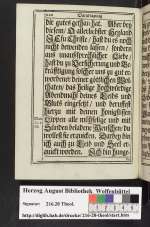 Danksagung
dir gutes gethan hat. Aber bey
diesem / O allerliebster Heyland
JEsu Christe / hast du es auch
nicht bewenden lassen / sondern
aus unaußsprechlicher Liebe /
hast du zu Versicherung und Be-
kräfftigung solcher und zu gut er-
worbener deiner göttlichen Wol-
thaten / das heilige hochwürdige
Abendmahl deines Leibs und
Bluts eingesetzt / und beruffest
hierzu mit deinen honigsüssen
Lippen alle mühselige und mit
Sünden beladene Menschen / du
wollest sie erquicken. Darbey bin
ich auch zu Leib und Seel er-
quickt worden. Ich bin hunge-
Herzog August Bibliothek Wolfenbüttel
Signatur: 216.28 Theol.
http://diglib.hab.de/drucke/216-28-theol/start.htm